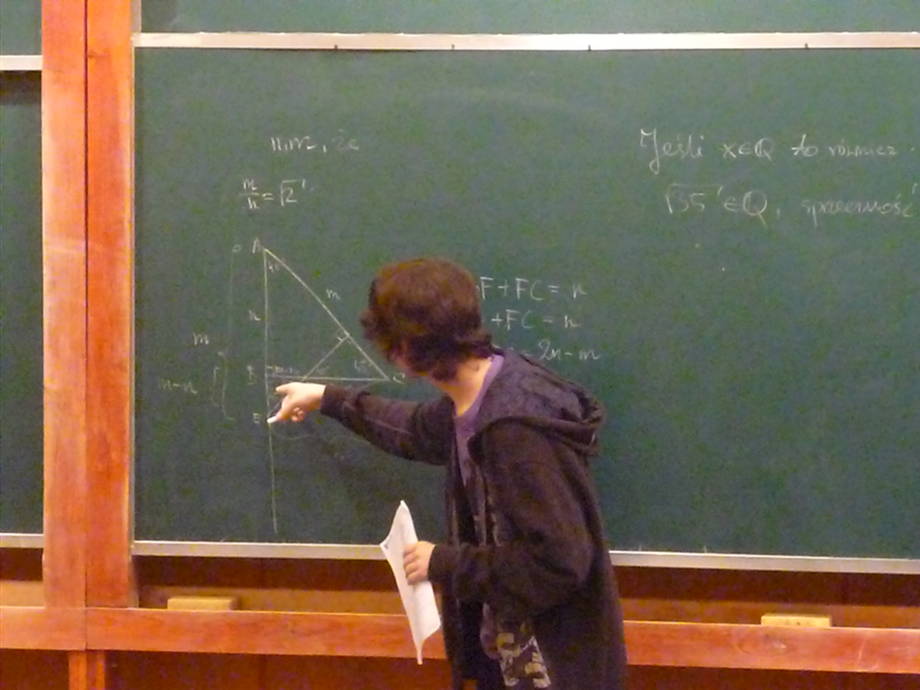 n,m, że
m/n = √2
A
m
n
m
B
C
m-n
E
F+FC = n
+FC = n
2n-m
Jeśli x∈Q to również
√35 ∈Q, sprzeczność